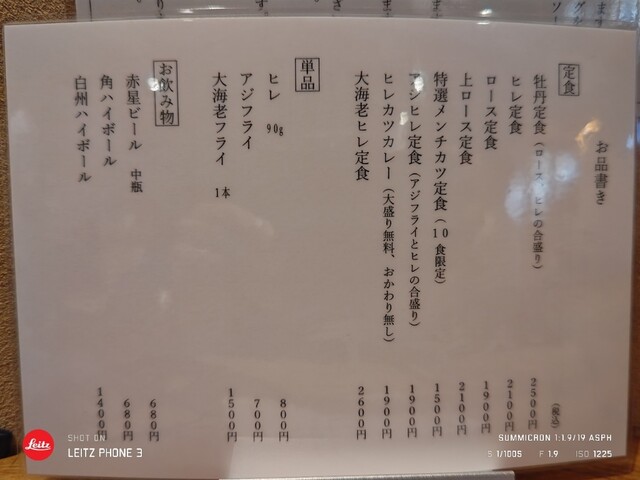 お品書き
(税込)
定食
牡丹定食(ロース、ヒレの合盛り) 2500円
ヒレ定食 2100円
ロース定食 1900円
上ロース定食 2100円
特選メンチカツ定食(10食限定) 1500円
アジヒレ定食(アジフライとヒレの合盛り) 1900円
ヒレカツカレー(大盛り無料、おかわり無し) 1900円
大海老ヒレ定食 2600円
単品
ヒレ 90g 800円
アジフライ 700円
大海老フライ 1本 1500円
お飲み物
赤星ビール 中瓶 680円
角ハイボール 680円
白州ハイボール 1400円
Leitz
SHOT ON
LEITZ PHONE 3
SUMMICRON 1:1.9/19 ASPH
S 1/100S F 1.9 ISO 1225